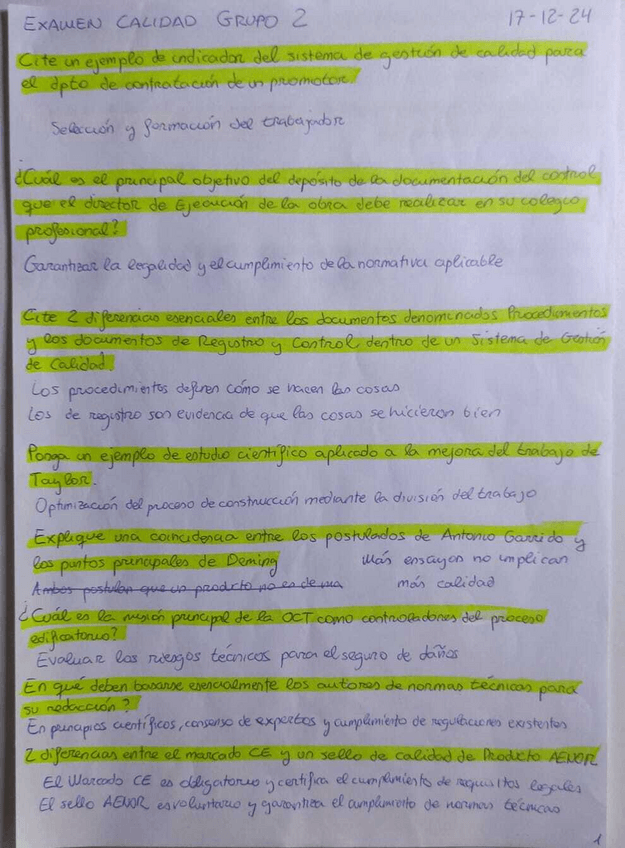 EXAMEN CALIDAD GRUPO 2 17-12-24
Cite un ejemplo de indicador del sistema de gestión de calidad para
el dpto de contratación de un promotor
Selección y formación del trabajador
¿Cuál es el principal objetivo del depósito de la documentación del control
que el director de Ejecución de la obra debe realizar en su colegio
profesional?
Garantizar la legalidad y el cumplimiento de la normativa aplicable
Cite 2 diferencias esenciales entre los documentos denominados Procedimientos
y los documentos de Registro y Control dentro de un Sistema de Gestión
de Calidad.
Los procedimientos definen cómo se hacen las cosas
Los de registro son evidencia de que las cosas se hicieron bien
Ponga un ejemplo de estudio científico aplicado a la mejora del trabajo de
Taylor.
Optimización del proceso de construcción mediante la división del trabajo
Explique una coincidencia entre los postulados de Antonio Garrido y
los puntos principales de Deming
Más ensayos no implican
más calidad
Ambos postulan que un producto no es de
¿Cuál es la misión principal de la OCT como controladores del proceso
edificatorio?
Evaluar los riesgos técnicos para el seguro de daños
En qué deben basarse esencialmente los autores de normas técnicas para
su redacción?
En principios científicos, consenso de expertos y cumplimiento de regulaciones existentes
2 diferencias entre el marcado CE y un sello de calidad de Producto AENOR
El Marcado CE es obligatorio y certifica el cumplimiento de requisitos legales
El sello AENOR es voluntario y garantiza el cumplimiento de normas técnicas
1